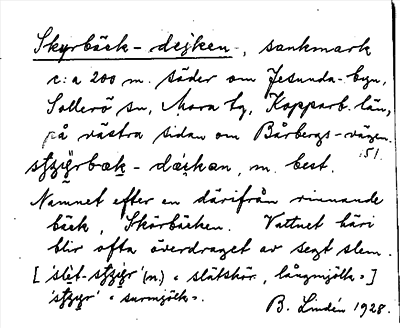 Skyrbäck-dejken, sankmark
c:a 200 m. söder om Jesunda-byn,
Sollerö sn, Mora tg, Kopparb. län,
på västra sidan om Bårbergs-vägen.
m. best.
Namnet efter en därifrån rinnande
bäck, Skörbäcken. Vattnet häri
blir ofta överdraget av segt slem.
(m) = slätskör, långmjölk =]
= surmjölk =.
B. Lindén 1928.